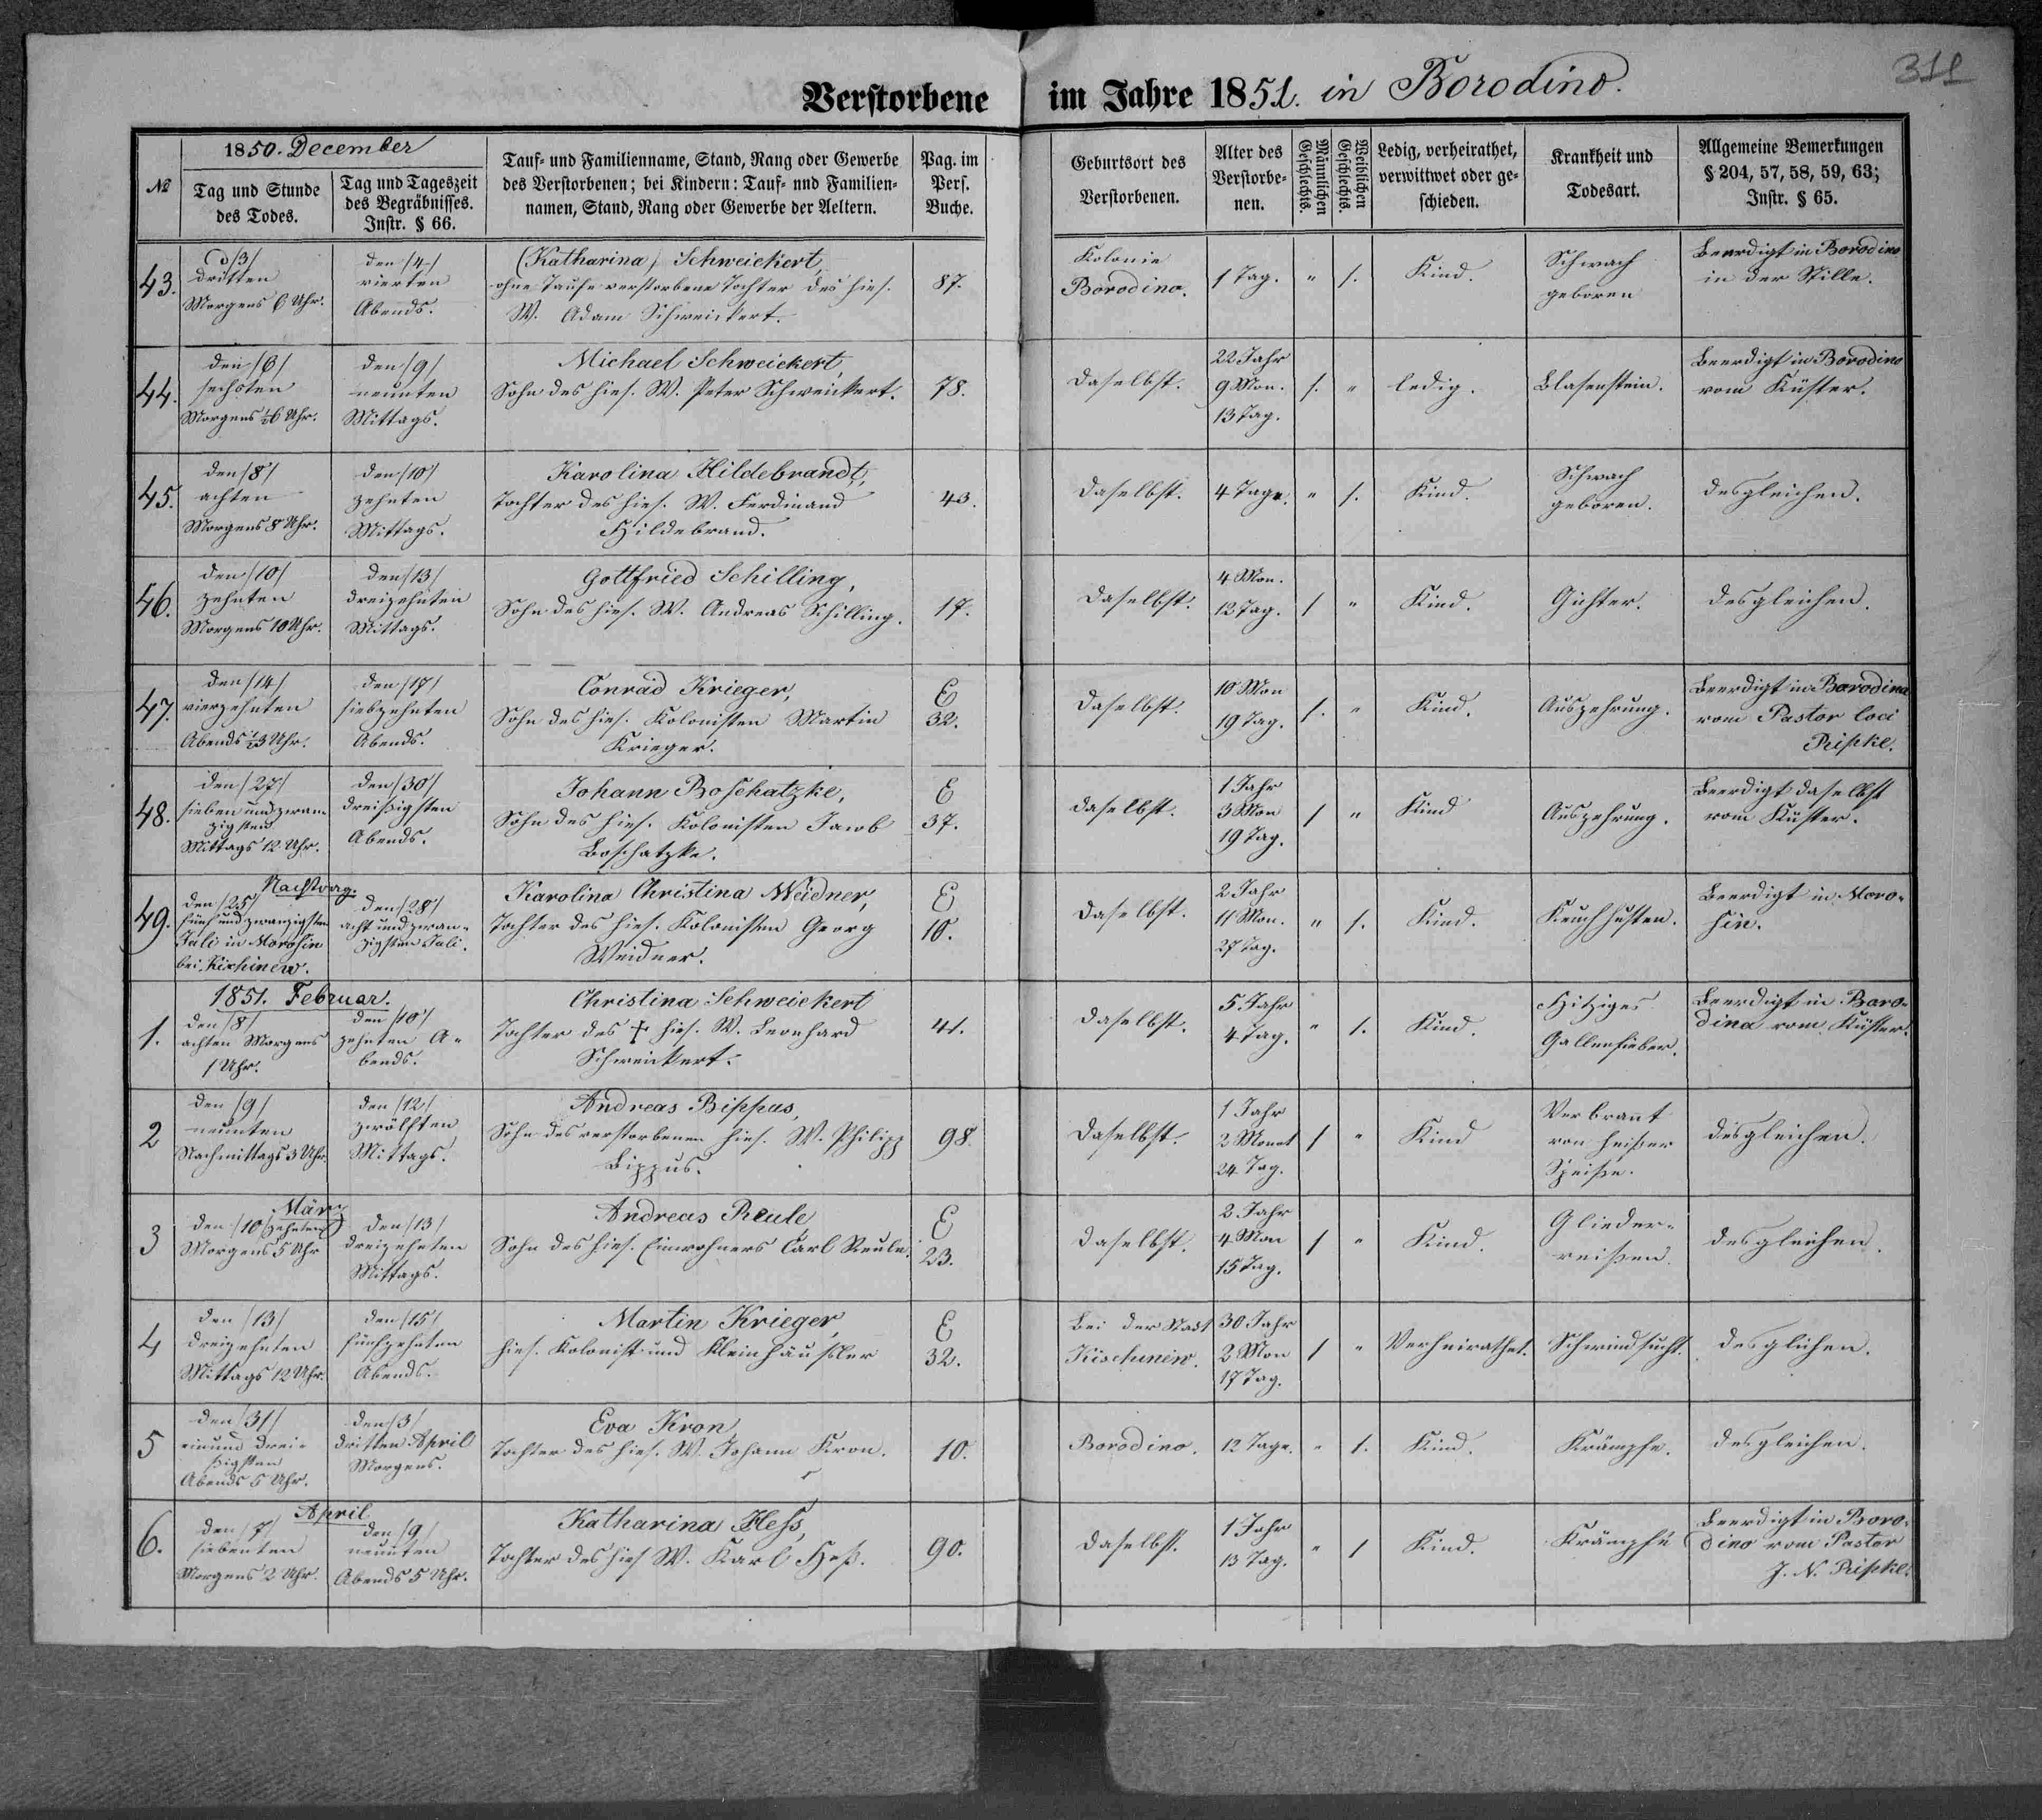 311
Verstorbene im Jahre 1851. in Borodino.
1850. December
№
Tag und Stunde des Todes.
Tag und Tageszeit des Begräbnisses. Instr. § 66.
Tauf- und Familienname, Stand, Rang oder Gewerbe des Verstorbenen; bei Kindern: Tauf- und Familien-namen, Stand, Rang oder Gewerbe der Aeltern.
Pag. im Pers. Buche.
Geburtsort des Verstorbenen.
Alter des Verstorbe-nen.
Männlichen Geschlechts.
Weiblichen Geschlechts.
Ledig, verheirathet, verwittwet oder ge-schieden.
Krankheit und Todesart.
Allgemeine Bemerkungen § 204, 57, 58, 59, 63; Instr. § 65.
43.
/3/
dritten
Morgens 6 Uhr.
den /4/
vierten
Abends.
(Katharina) Schweickert,
ohne Taufe verstorbene Tochter des hies.
W. Adam Schweickert.
87.
Kolonie
Borodino.
1 Tag.
" 1.
Kind.
Schwach
geboren
Beerdigt in Borodino
in der Stille.
44.
den /6/
sechsten
Morgens ½6 Uhr.
den /9/
neunten
Mittags.
Michael Schweickert,
Sohn des hies. W. Peter Schweickert.
78.
Daselbst.
22 Jahr
9 Mon.
13 Tag.
1. "
ledig.
Blasenstein.
Beerdigt in Borodino
vom Küster.
45.
den /8/
achten
Morgens 8 Uhr.
den /10/
zehnten
Mittags.
Karolina Hildebrandt,
Tochter des hies. W. Ferdinand
Hildebrand.
43.
Daselbst.
4 Tage.
" 1.
Kind.
Schwach
geboren.
desgleichen.
46.
den /10/
zehnten
Morgens 10 Uhr.
den /13/
dreizehnten
Mittags.
Gottfried Schilling,
Sohn des hies. W. Andreas Schilling.
17.
Daselbst.
4 Mon.
12 Tag.
1 "
Kind.
Gichter.
desgleichen.
47.
den /14/
vierzehnten
Abends ½3 Uhr.
den /17/
siebzehnten
Abends.
Conrad Krieger,
Sohn des hies. Kolonisten Martin
Krieger.
E
32.
Daselbst.
10 Mon
19 Tag.
1. "
Kind.
Auszehrung.
Beerdigt in Borodino
vom Pastor loci
Pripke.
48.
den /27/
sieben und zwan-
zigsten
Mittags 12 Uhr.
den /30/
dreißigsten
Abends.
Johann Boschatzke,
Sohn des hies. Kolonisten Jacob
Boschatzke.
E
37.
Daselbst.
1 Jahr
3 Mon
19 Tag.
1 "
Kind
Auszehrung.
Beerdigt daselbst
vom Küster.
49.
Nachtrag.
den /25/
fünf und zwanzigsten
Juli in Morosin
bei Kischinew.
den /28/
acht und zwan-
zigsten Juli.
Karolina Christina Weidner,
Tochter des hies. Kolonisten Georg
Weidner.
E
10.
Daselbst.
2 Jahr
11 Mon.
27 Tag.
" 1.
Kind.
Keuchhusten.
Beerdigt in Moro-
sin.
1851. Februar.
1.
den /8/
achten Morgens
1 Uhr.
den /10/
zehnten A-
bends.
Christina Schweickert
Tochter des † hies. W. Leonhard
Schweickert.
41.
Daselbst.
5 Jahr
4 Tag.
" 1.
Kind.
Hitziges
Gallenfieber.
Beerdigt in Boro-
dino vom Küster.
2
den /9/
neunten
Nachmittags 3 Uhr.
den /12/
zwölften
Mittags.
Andreas Bippus,
Sohn des verstorbenen hies. W. Philipp
Bippus.
98
Daselbst.
1 Jahr
2 Monat
24 Tag.
1 "
Kind
Verbrannt
von heißer
Speise.
desgleichen.
März
3
den /10/ zehnten
Morgens 5 Uhr
den /13/
dreizehnten
Mittags.
Andreas Reule
Sohn des hies. Einwohners Carl Reule.
E
23.
Daselbst.
2 Jahr
4 Mon
15 Tag.
1 "
Kind.
Glieder-
reißen.
desgleichen.
4
den /13/
dreizehnten
Mittags 12 Uhr.
den /15/
fünfzehnten
Abends.
Martin Krieger,
hies. Kolonist und Kleinhäusler
E
32.
Bei der Stadt
Kischinew.
30 Jahr
2 Mon
17 Tag.
1 "
Verheirathet.
Schwindsucht.
desglichen.
5
den /31/
einund drei-
ßigsten
Abends 5 Uhr.
den /3/
dritten April
Morgens.
Eva Kron,
Tochter des hies. W. Johann Kron.
10.
Borodino.
12 Tage.
" 1.
Kind.
Krämpfe.
desgleichen.
April
6.
den /7/
siebenten
Morgens 2 Uhr.
den /9/
neunten
Abends 5 Uhr.
Katharina Hess,
Tochter des hies W. Karl Heß.
90.
Daselbst.
1 Jahr
13 Tag.
" 1
Kind.
Krämpfe
Beerdigt in Boro-
dino vom Pastor
J. N. Pripke.